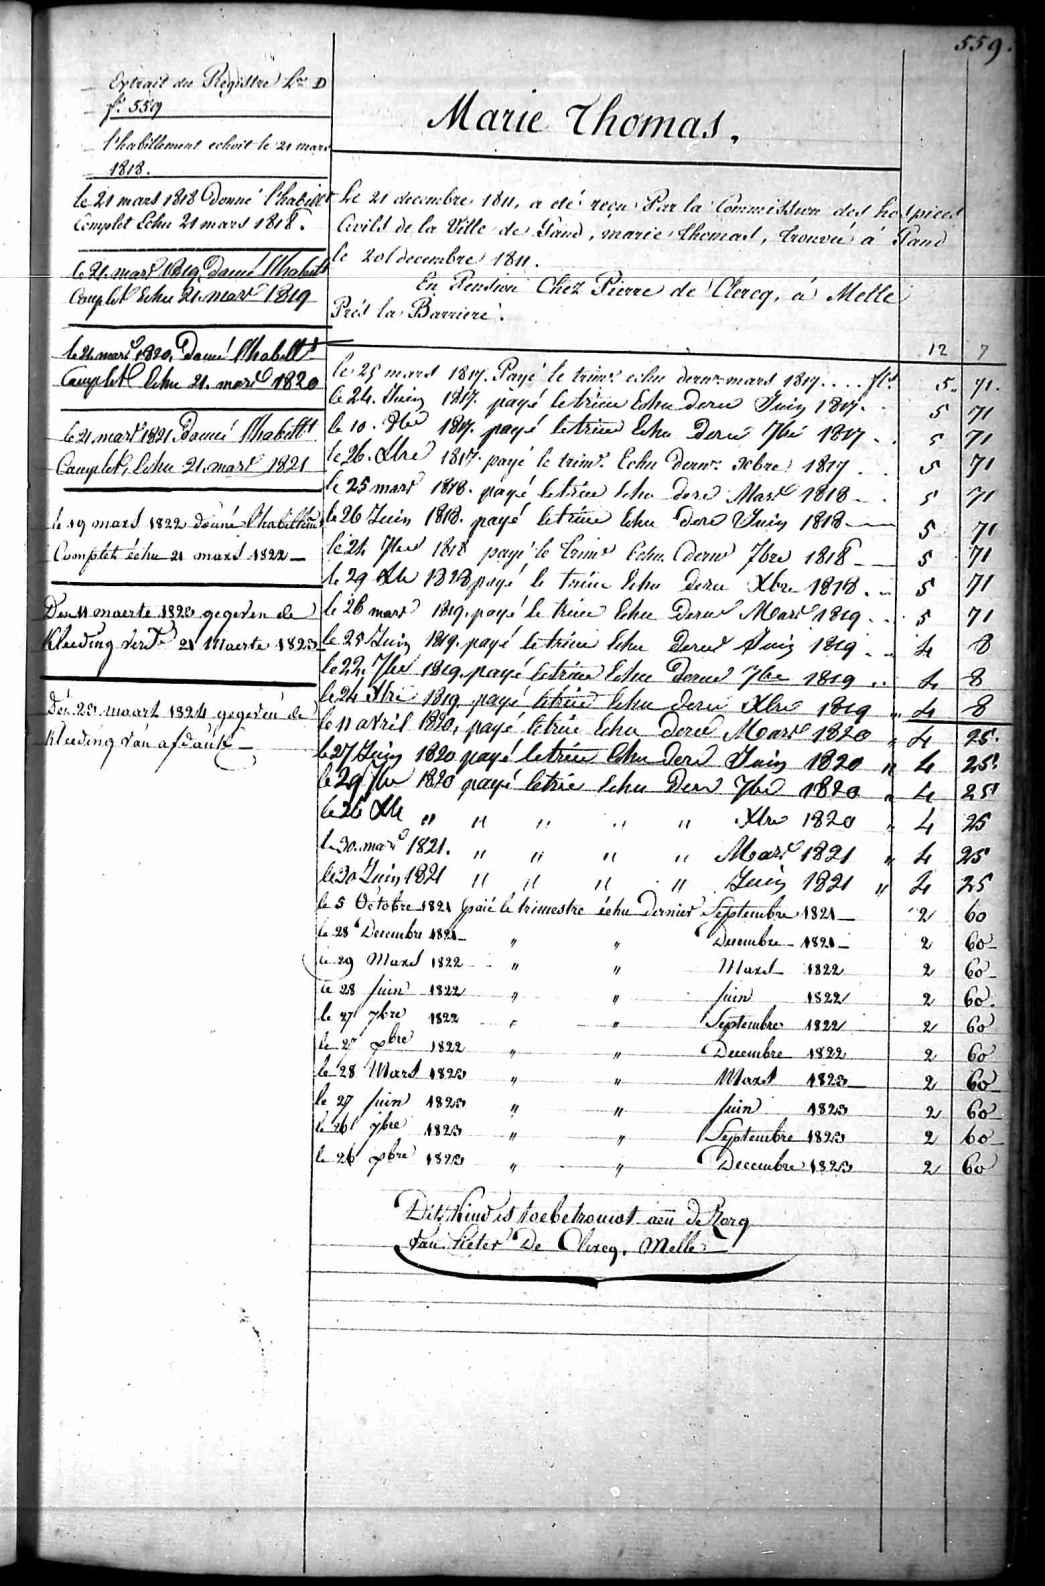 559.
Extrait du Registre Lre D
fo. 559
l'habillement echoit le 21 mars
1818.
le 21 mars 1818 Donné l'habillt
Complet Echu 21 mars 1818.
le 21 mars 1819, Donné l'habillt
Complet Echu 21 mars 1819
le 21 mars 1820, Donné l'habillt
Complet Echu 21 mars 1820
le 21 mars 1821, Donné l'habillt
Complet, Echu 21 mars 1821
le 19 mars 1822 donné l'habillem
Complet échu 21 mars 1822 —
Den 11 maerte 1823 gegeven de
Kleeding 21 Maerte 1823
Den 23 maart 1824 gegeven de
Kleeding van afdank —
Marie Thomas.
Le 21 decembre 1811, a été reçu Par la Commission des hospices
Civils de la Ville de Gand, marie thomas, trouvée á Gand
le 20 decembre 1811.
En Pension Chez Pierre de Clercq, á Melle
Prés la Barriere.
12 7
le 25 mars 1817. Payé le trimr. echu dernr. mars 1817 . . . . fls. 5. 71.
le 24 Juin 1817 payé le trim Echu dern Juin 1817 . 5 71
le 10. 7bre 1817. payé le trim Echu dern 7bre 1817 . . 5 71
le 26. Xbre 1817 payé le trimr. Echu dernr. Xbre 1817 . . 5 71
le 25 mars 1818. payé le trim Echu dern Mars 1818 — . 5 71
le 26 Juin 1818. payé le trim Echu dern Juin 1818 — 5 71
le 24 7bre 1818 payé le trimr Echu dern 7bre 1818 — 5 71
le 29 Xbre 1818 payé le trim Echu dern Xbre 1818 . . 5 71
le 26 mars 1819. payé le trim Echu dern Mars 1819 . . 5 71
le 25 Juin 1819. payé le trim Echu dern Juin 1819 . . 4 8
le 22. 7bre 1819. payé le trim Echu Dern 7bre 1819 . . 4 8
le 24 Xbre 1819 payé le trim Echu dern Xbre 1819 " 4 8
le 11 avril 1820, payé le trim Echu dern Mars 1820 " 4 25.
le 27 Juin 1820 payé le trim Echu dern Juin 1820 " 4 25.
le 29 7bre 1820 payé le trim Echu Dern 7bre 1820 " 4 25
le 26 Xbre " " " " " Xbre 1820 " 4 25
le 30 mars 1821. " " " " Mars 1821 " 4 25
le 30 Juin 1821 " " " " Juin 1821 " 4 25
le 5 Octobre 1821 paié le trimestre échu dernier Septembre 1821 — 2 60
le 28 Decembre 1821 — " " Decembre — 1821 — 2 60
le 29 Mars 1822 " " Mars 1822 2 60
le 28 Juin 1822 " " Juin 1822 2 60
le 27 7bre 1822 " " Septembre 1822 2 60
le 27 xbre 1822 " " Decembre 1822 2 60
le 28 Mars 1823 " " Mars 1823 2 60
le 27 Juin 1823 " " Juin 1823 2 60
le 26 7bre 1823 " " Septembre 1823 2 60
le 26 xbre 1823 " " Decembre 1823 2 60
Dit Kind is toebetrouwt aen de Zorg
van Pieter De Clercq, Melle